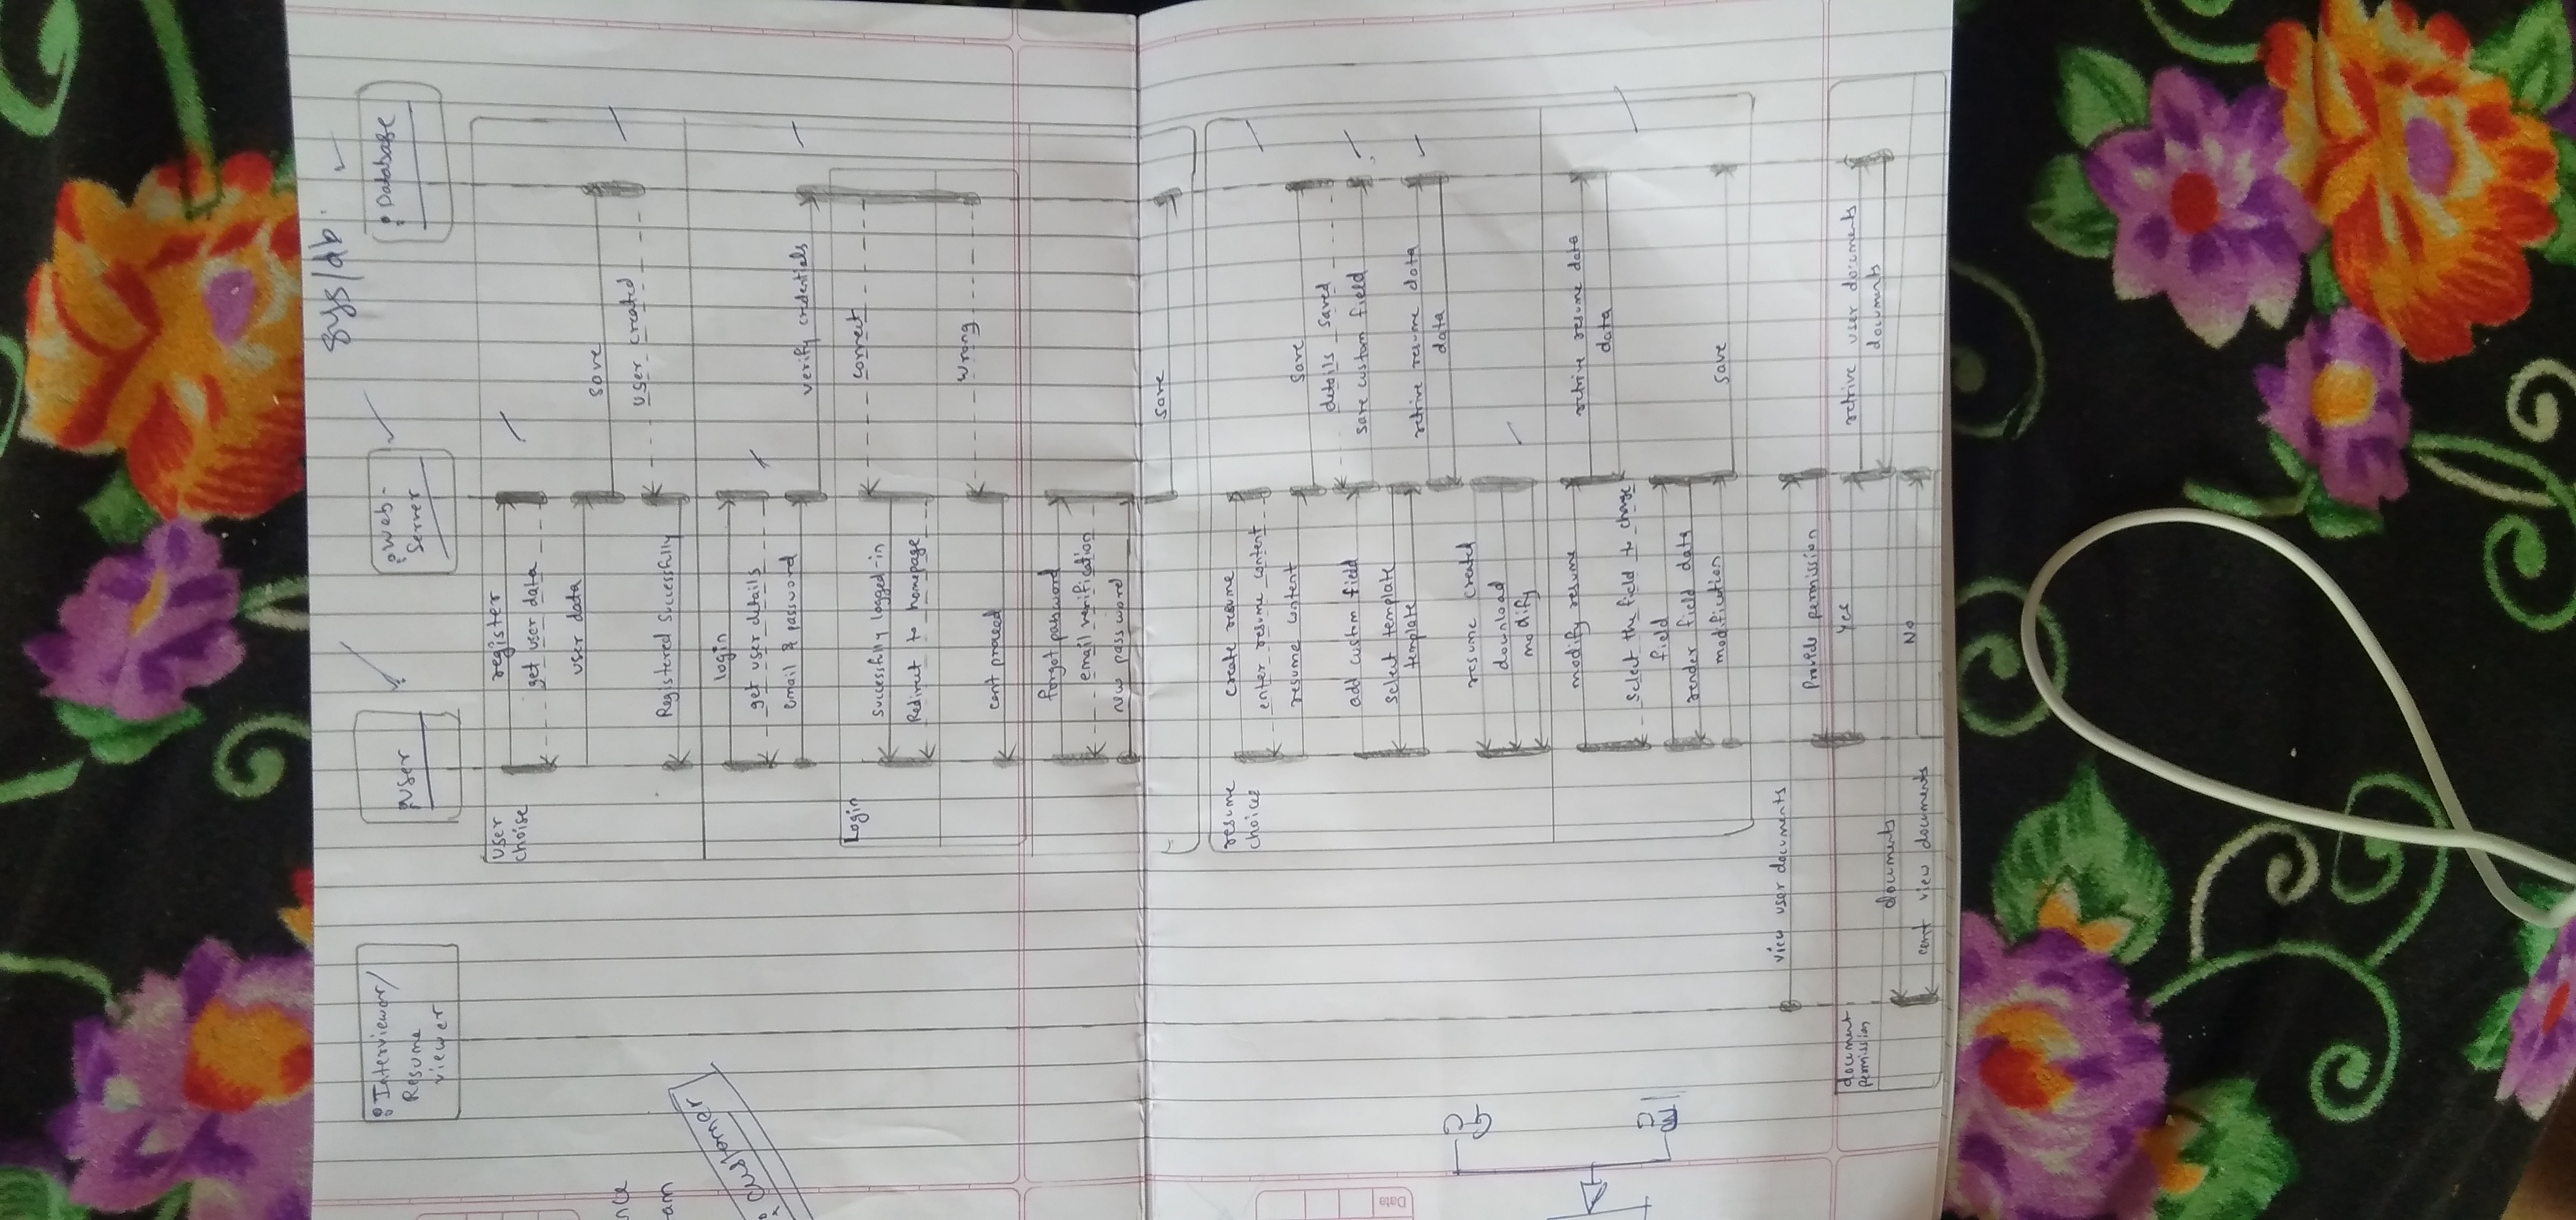 sys/db.
: Interviewer/
Resume
viewer
: User
: Web-
Server
: Database
User
choise
register
get user data
user data
save
user created
Registered Successfully
nce
am
: customer
login
get user details
email & password
verify credentials
Login
correct
Successfully logged-in
Redirect to homepage
Wrong
cant proceed
forgot password
email verification
new password
save
resume
choice
create resume
enter resume content
resume content
save
details saved
add custom field
save custom field
select template
template
retrive resume data
data
Date
GU
EU
resume created
download
modify
modify resume
retrive resume data
data
select the field to change
field
render field data
modification
save
view user documents
Provide permission
document
permission
Yes
retrive user documents
documents
documents
No
cant view documents